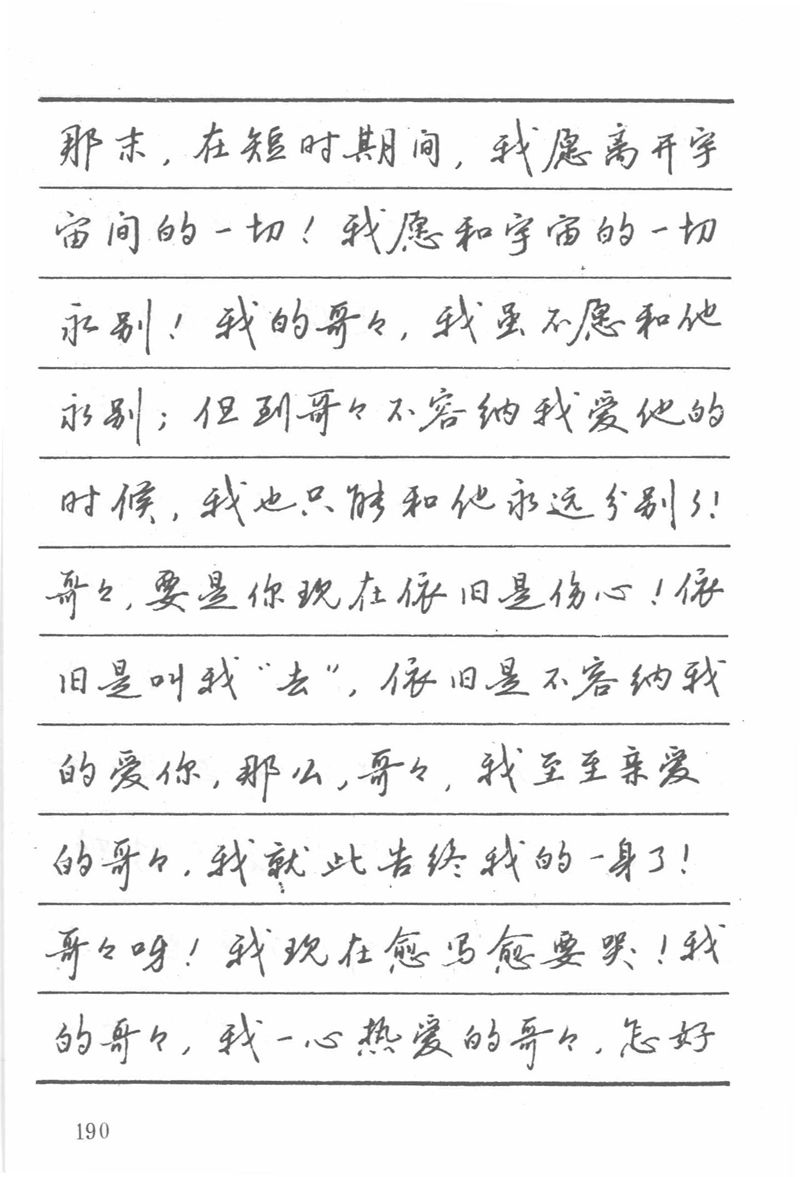 那末，在短时期间，我愿离开宇
宙间的一切！我愿和宇宙的一切
永别！我的哥々，我虽不愿和他
永别；但到哥々不容纳我爱他的
时候，我也只能和他永远分别了！
哥々，要是你现在依旧是伤心！依
旧是叫我“去”，依旧是不容纳我
的爱你，那么，哥々，我至至亲爱
的哥々，我就此告终我的一身了！
哥々呀！我现在愈写愈要哭！我
的哥々，我一心热爱的哥々，怎好
190